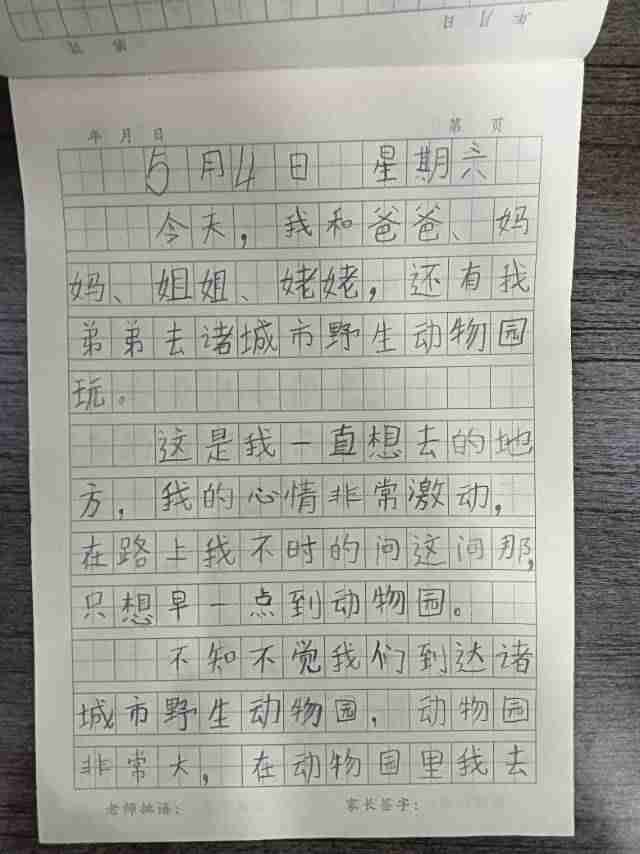 年 月 日
第 页
5月4日 星期六
今天，我和爸爸、妈
妈、姐姐、姥姥，还有我
弟弟去诸城市野生动物园
玩。
这是我一直想去的地
方，我的心情非常激动，
在路上我不时的问这问那，
只想早一点到动物园。
不知不觉我们到达诸
城市野生动物园，动物园
非常大，在动物园里我去
老师批语：
家长签字：